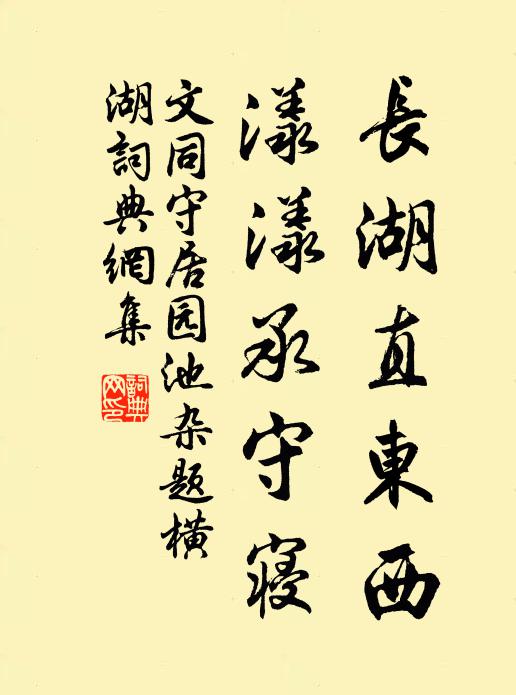 長湖直東西
漾漾承守寝
文同守居园池杂题橫
湖詞典網集
詞典网印